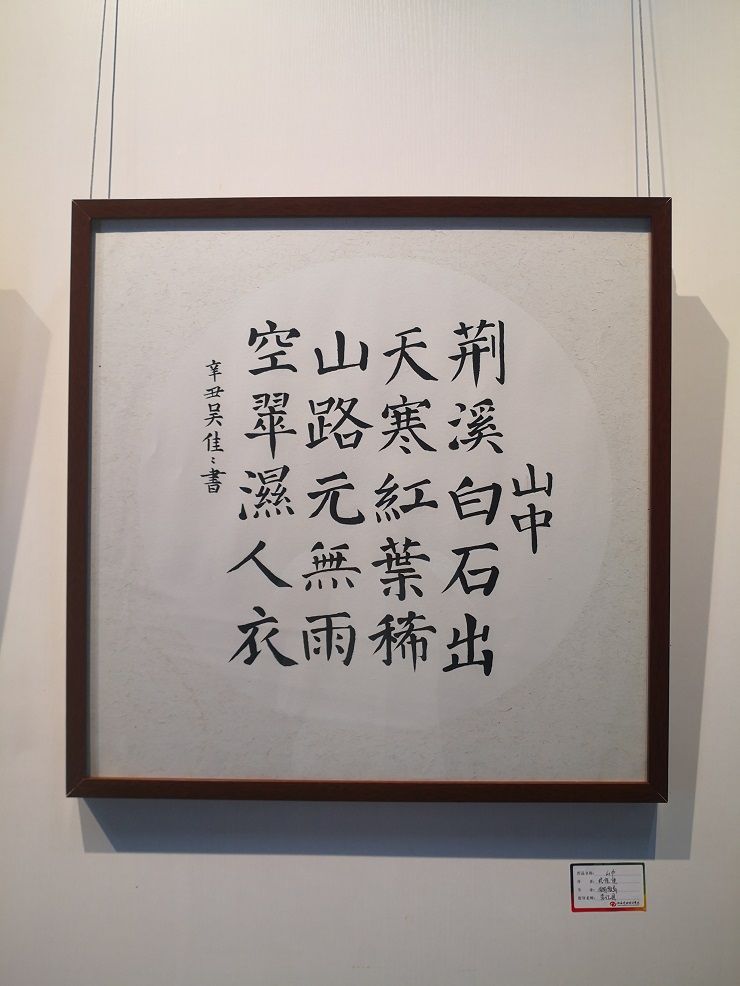 山中
荊溪白石出
天寒紅葉稀
山路元無雨
空翠濕人衣
辛丑吴佳〻書
山中